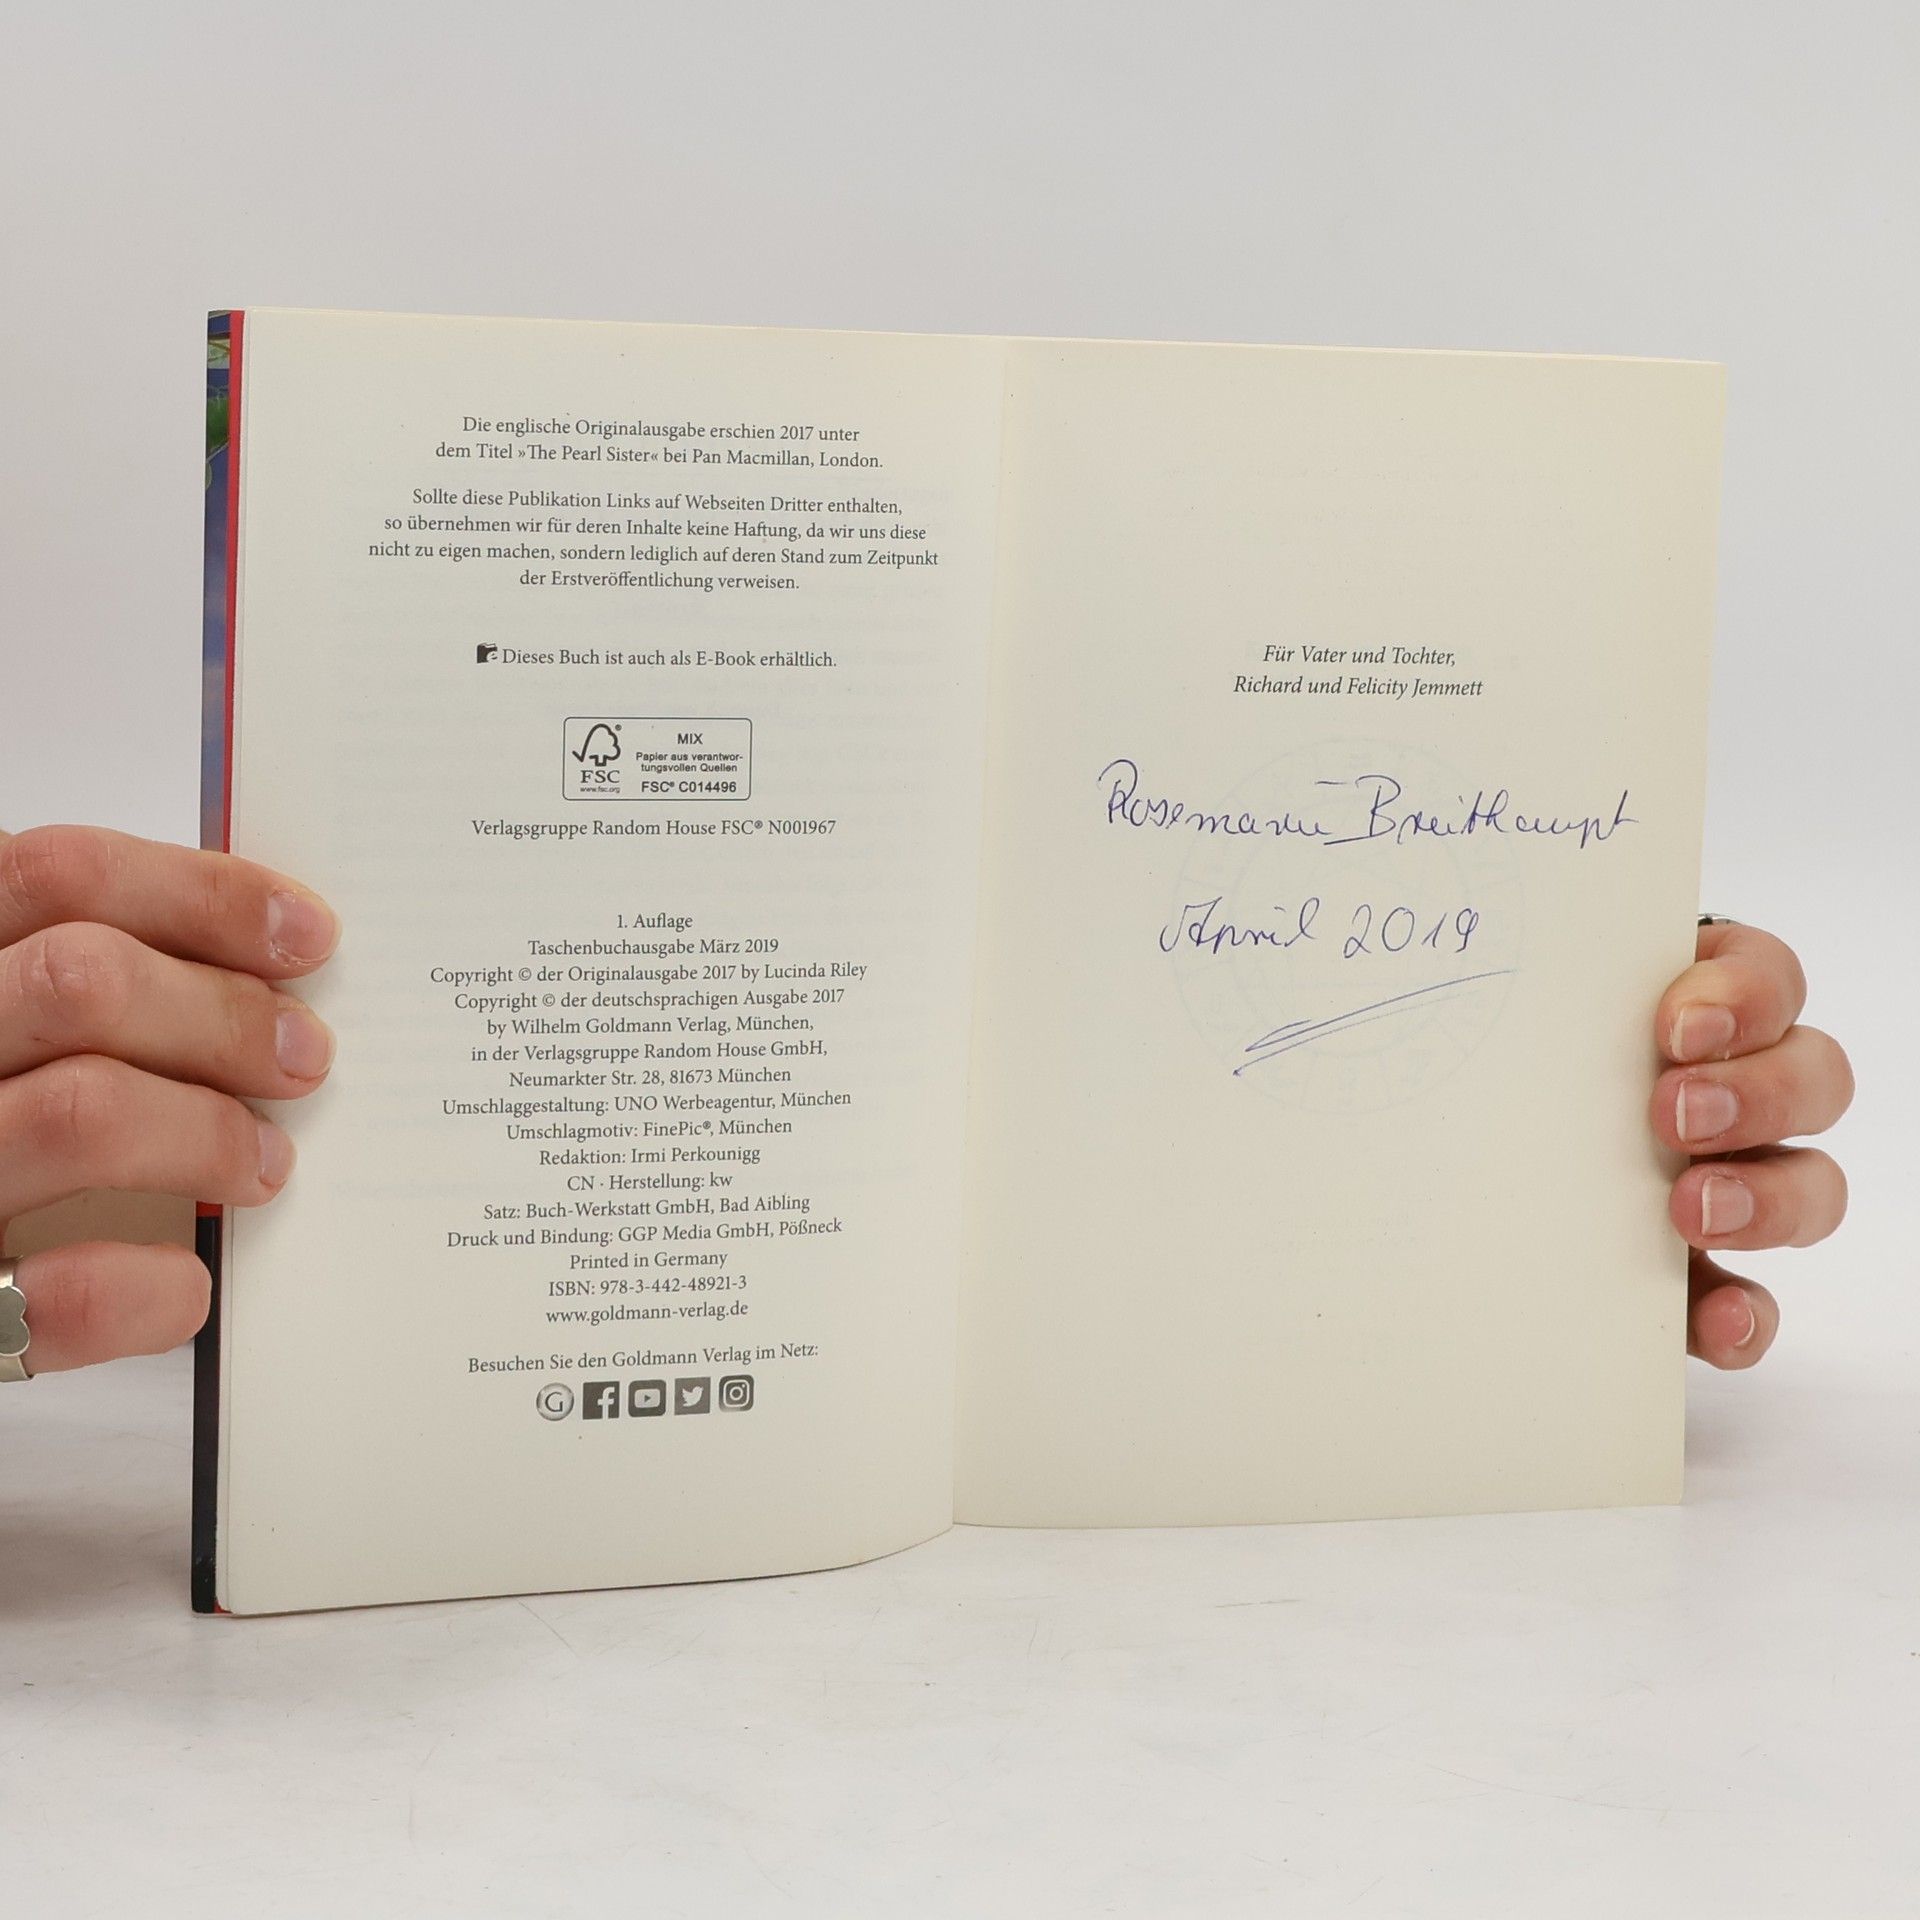 Die englische Originalausgabe erschien 2017 unter
dem Titel »The Pearl Sister« bei Pan Macmillan, London.
Sollte diese Publikation Links auf Webseiten Dritter enthalten,
so übernehmen wir für deren Inhalte keine Haftung, da wir uns diese
nicht zu eigen machen, sondern lediglich auf deren Stand zum Zeitpunkt
der Erstveröffentlichung verweisen.
Dieses Buch ist auch als E-Book erhältlich.
FSC
www.fsc.org
MIX
Papier aus verantwor-
tungsvollen Quellen
FSC® C014496
Verlagsgruppe Random House FSC® N001967
1. Auflage
Taschenbuchausgabe März 2019
Copyright © der Originalausgabe 2017 by Lucinda Riley
Copyright © der deutschsprachigen Ausgabe 2017
by Wilhelm Goldmann Verlag, München,
in der Verlagsgruppe Random House GmbH,
Neumarkter Str. 28, 81673 München
Umschlaggestaltung: UNO Werbeagentur, München
Umschlagmotiv: FinePic®, München
Redaktion: Irmi Perkounigg
CN · Herstellung: kw
Satz: Buch-Werkstatt GmbH, Bad Aibling
Druck und Bindung: GGP Media GmbH, Pößneck
Printed in Germany
ISBN: 978-3-442-48921-3
www.goldmann-verlag.de
Besuchen Sie den Goldmann Verlag im Netz:
G
Für Vater und Tochter,
Richard und Felicity Jemmett
Rosemarie Breitkaupt
April 2019